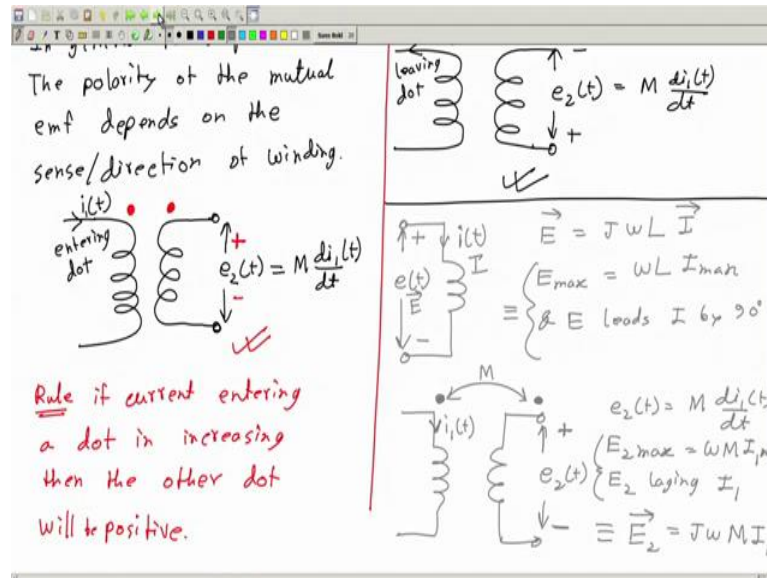 The polarity of the mutual
emf depends on the
sense/direction of winding.
i₁(t)
entering
dot
+
e₂(t) = M di₁(t)/dt
-
Rule if current entering
a dot in increasing
then the other dot
will be positive.
leaving
dot
-
e₂(t) = M di₁(t)/dt
+
+ i(t)
e(t) I
E
-
E = JωL I
≡ { Emax = ωL Imax
& E leads I by 90°
M
i₁(t)
+
e₂(t)
-
e₂(t) = M di₁(t
dt
E₂max = ωM I₁
E₂ laging I₁
≡ E₂ = JωM I